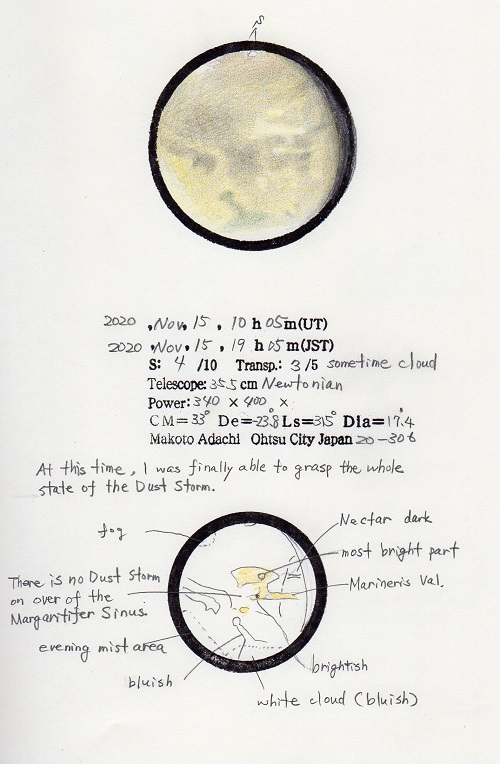 S
2020 , Nov, 15 , 10 h 05 m (UT)
2020 , Nov, 15 , 19 h 05 m (JST)
S: 4 /10 Transp.: 3 /5 sometime cloud
Telescope: 35.5 cm Newtonian
Power: 340 × 400 ×
CM= 33° De= -23.8 Ls= 315° Dia= 17".4
Makoto Adachi Ohtsu City Japan 20-306
At this time, I was finally able to grasp the whole
state of the Dust Storm.
fog
Nectar dark
most bright part
There is no Dust Storm
on over of the
Margaritifer Sinus.
Marineris Val.
evening mist area
bluish
brightish
white cloud (bluish)